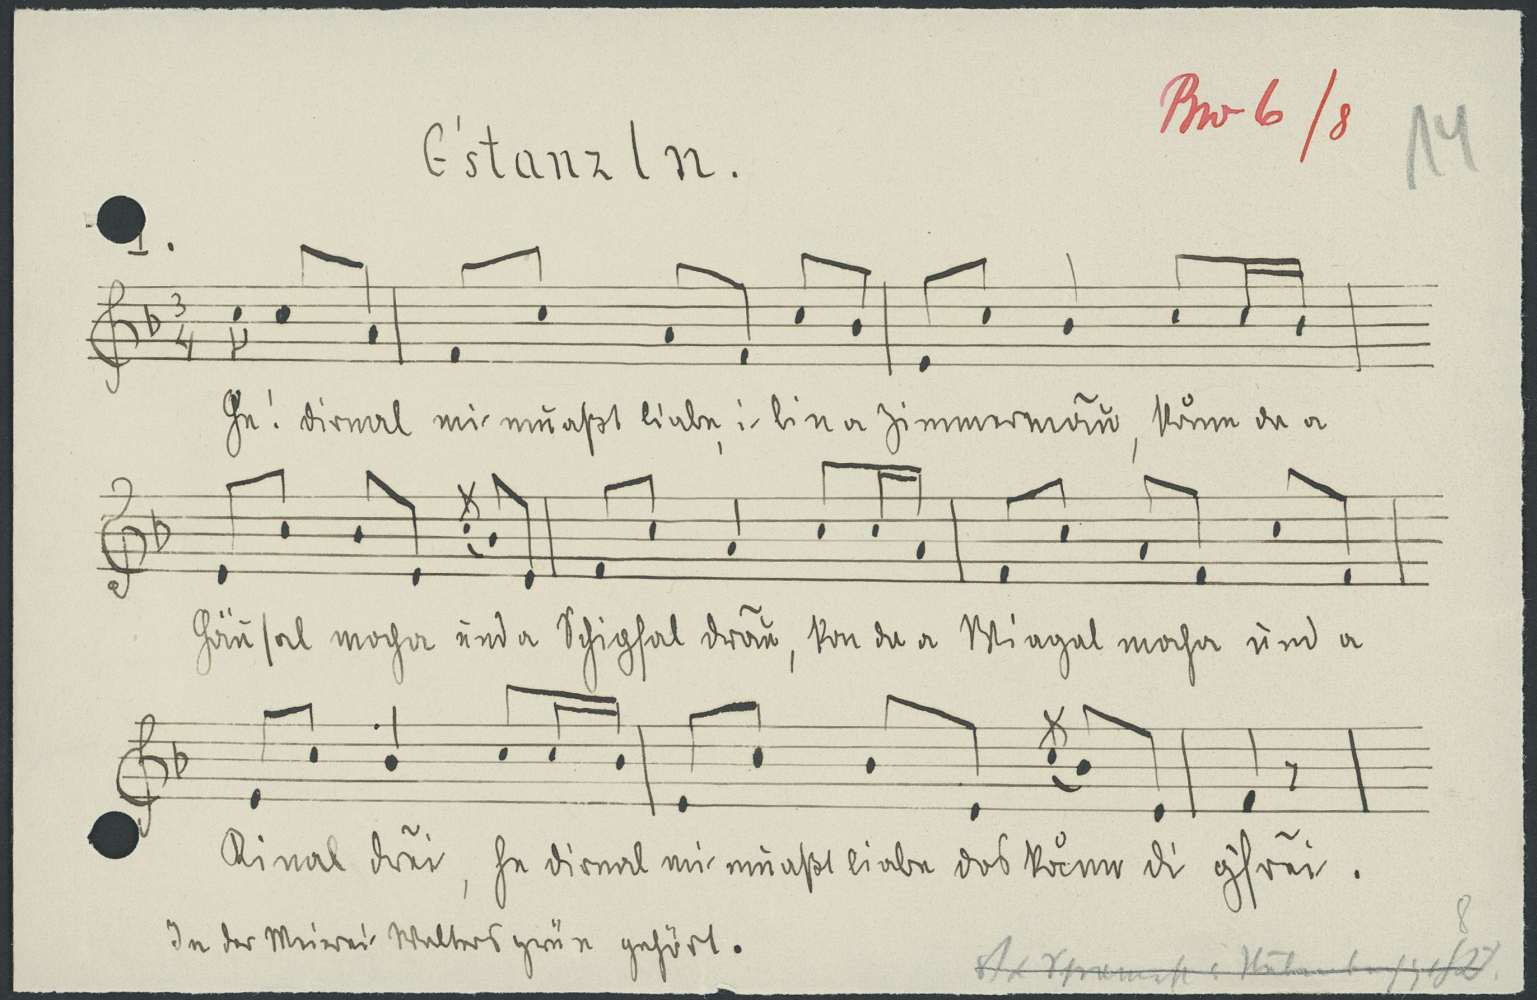 Bw 6/8
14
G'stanzln.
1.
3
4
He! dirnal mi muaßt liabe, i bin a Zimmermãu, kånn da a
Häusal mocha und a Schigsal drãu, kon da a Wiagal mocha und a
Kinal drẽi, he dirnal mi muaßt liabe das kånn di g'frẽi.
In der Meierei Waltersgrün gehört.
8